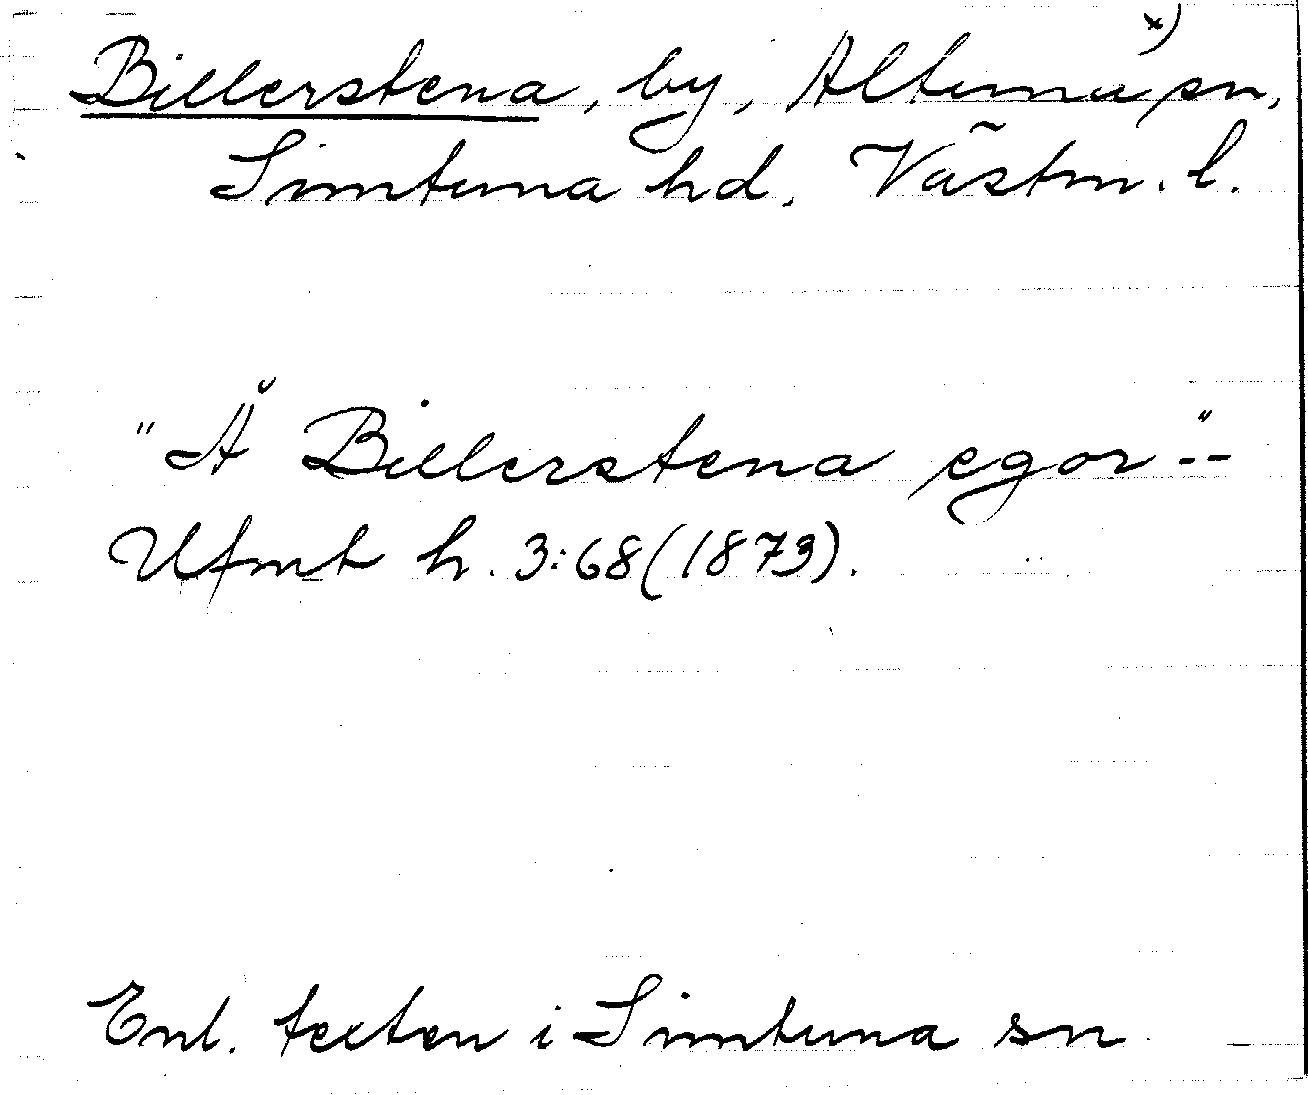 x)
Billerstena, by, Altuna sn,
Simtuna hd. Västm. l.
"Å Billerstena egor --"
Ufmt h. 3:68(1873).
Enl. texten i Simtuna sn